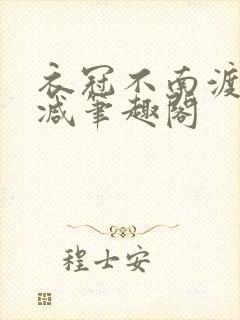 衣冠不南渡
减笔趣阁
程士安